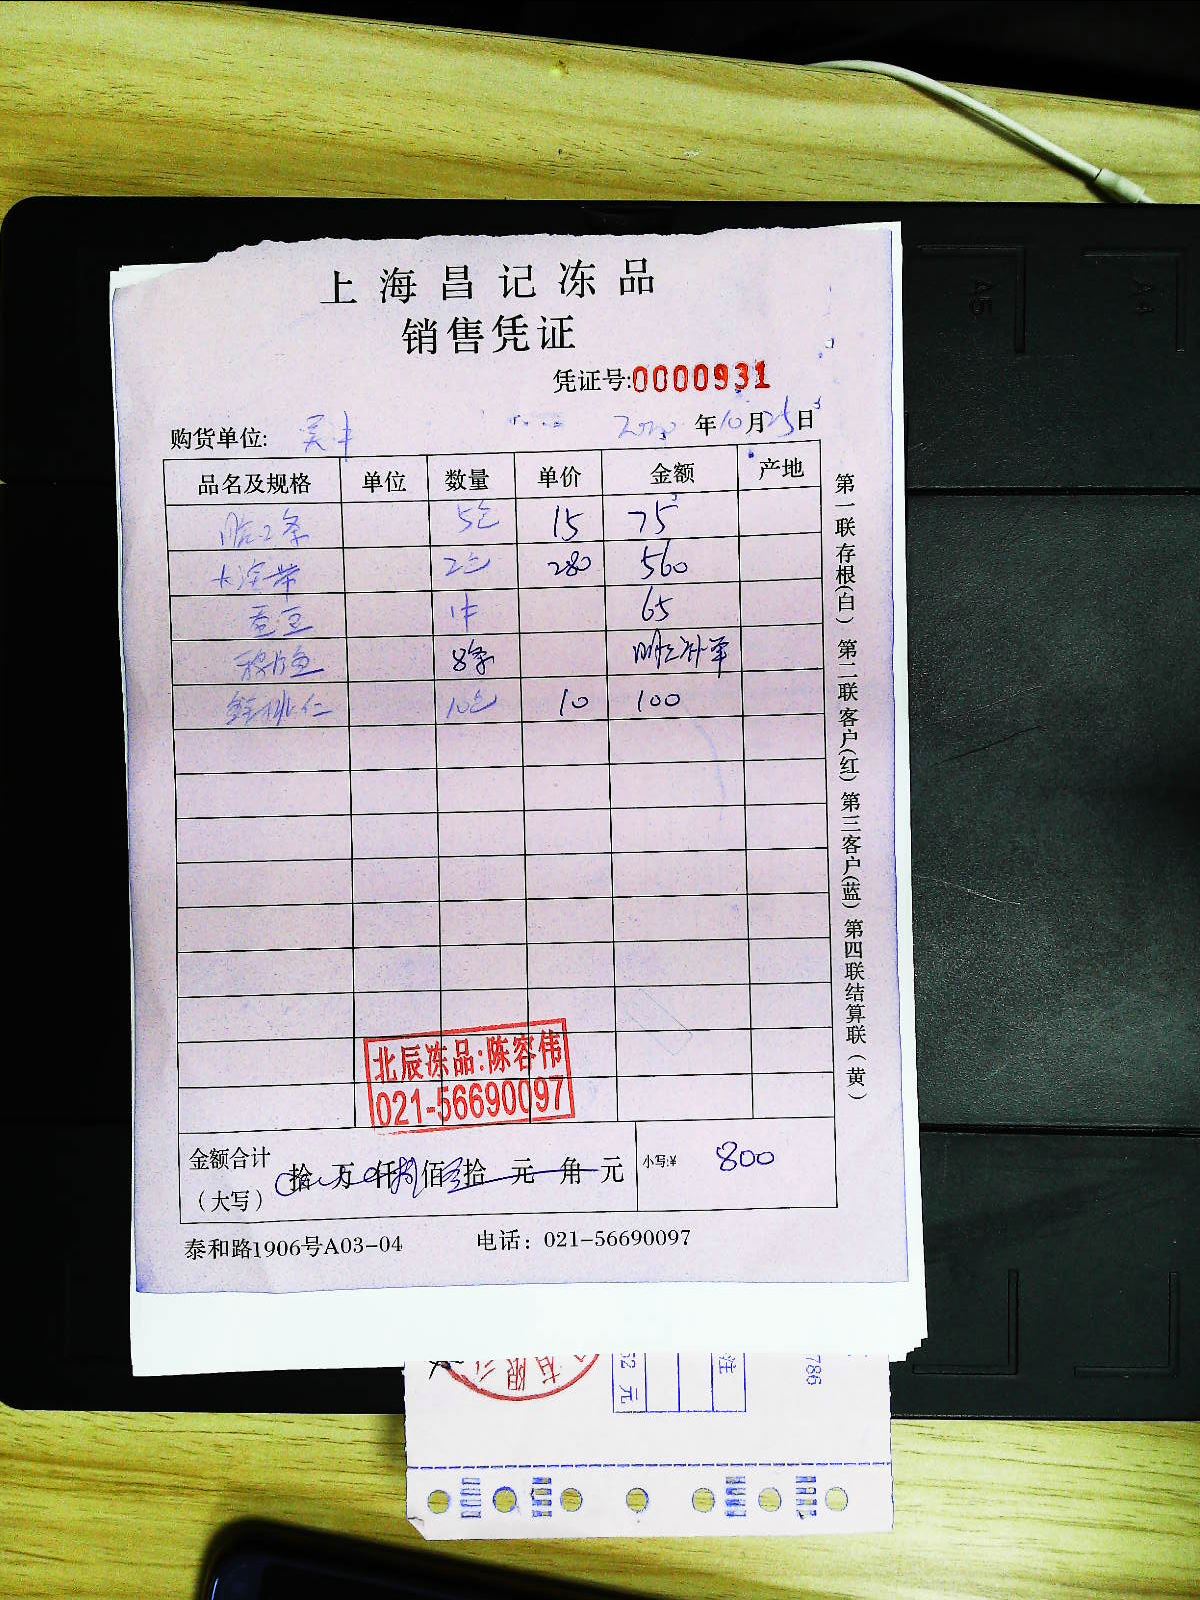 上海昌记冻品
销售凭证
凭证号:0000931
购货单位: 年10月25日
品名及规格 单位 数量 单价 金额 产地
5包 15 75
2包 280 560
蚕豆 1件 65
8条 明天补单
10包 10 100
北辰冻品:陈容伟
021-56690097
金额合计
(大写)
拾 万 仟 捌佰 拾 元 角 元
小写:¥ 800
泰和路1906号A03-04 电话: 021-56690097
第一联存根(白) 第二联客户(红) 第三客户(蓝) 第四联结算联(黄)
A5
A4
有限
52 元
注
786